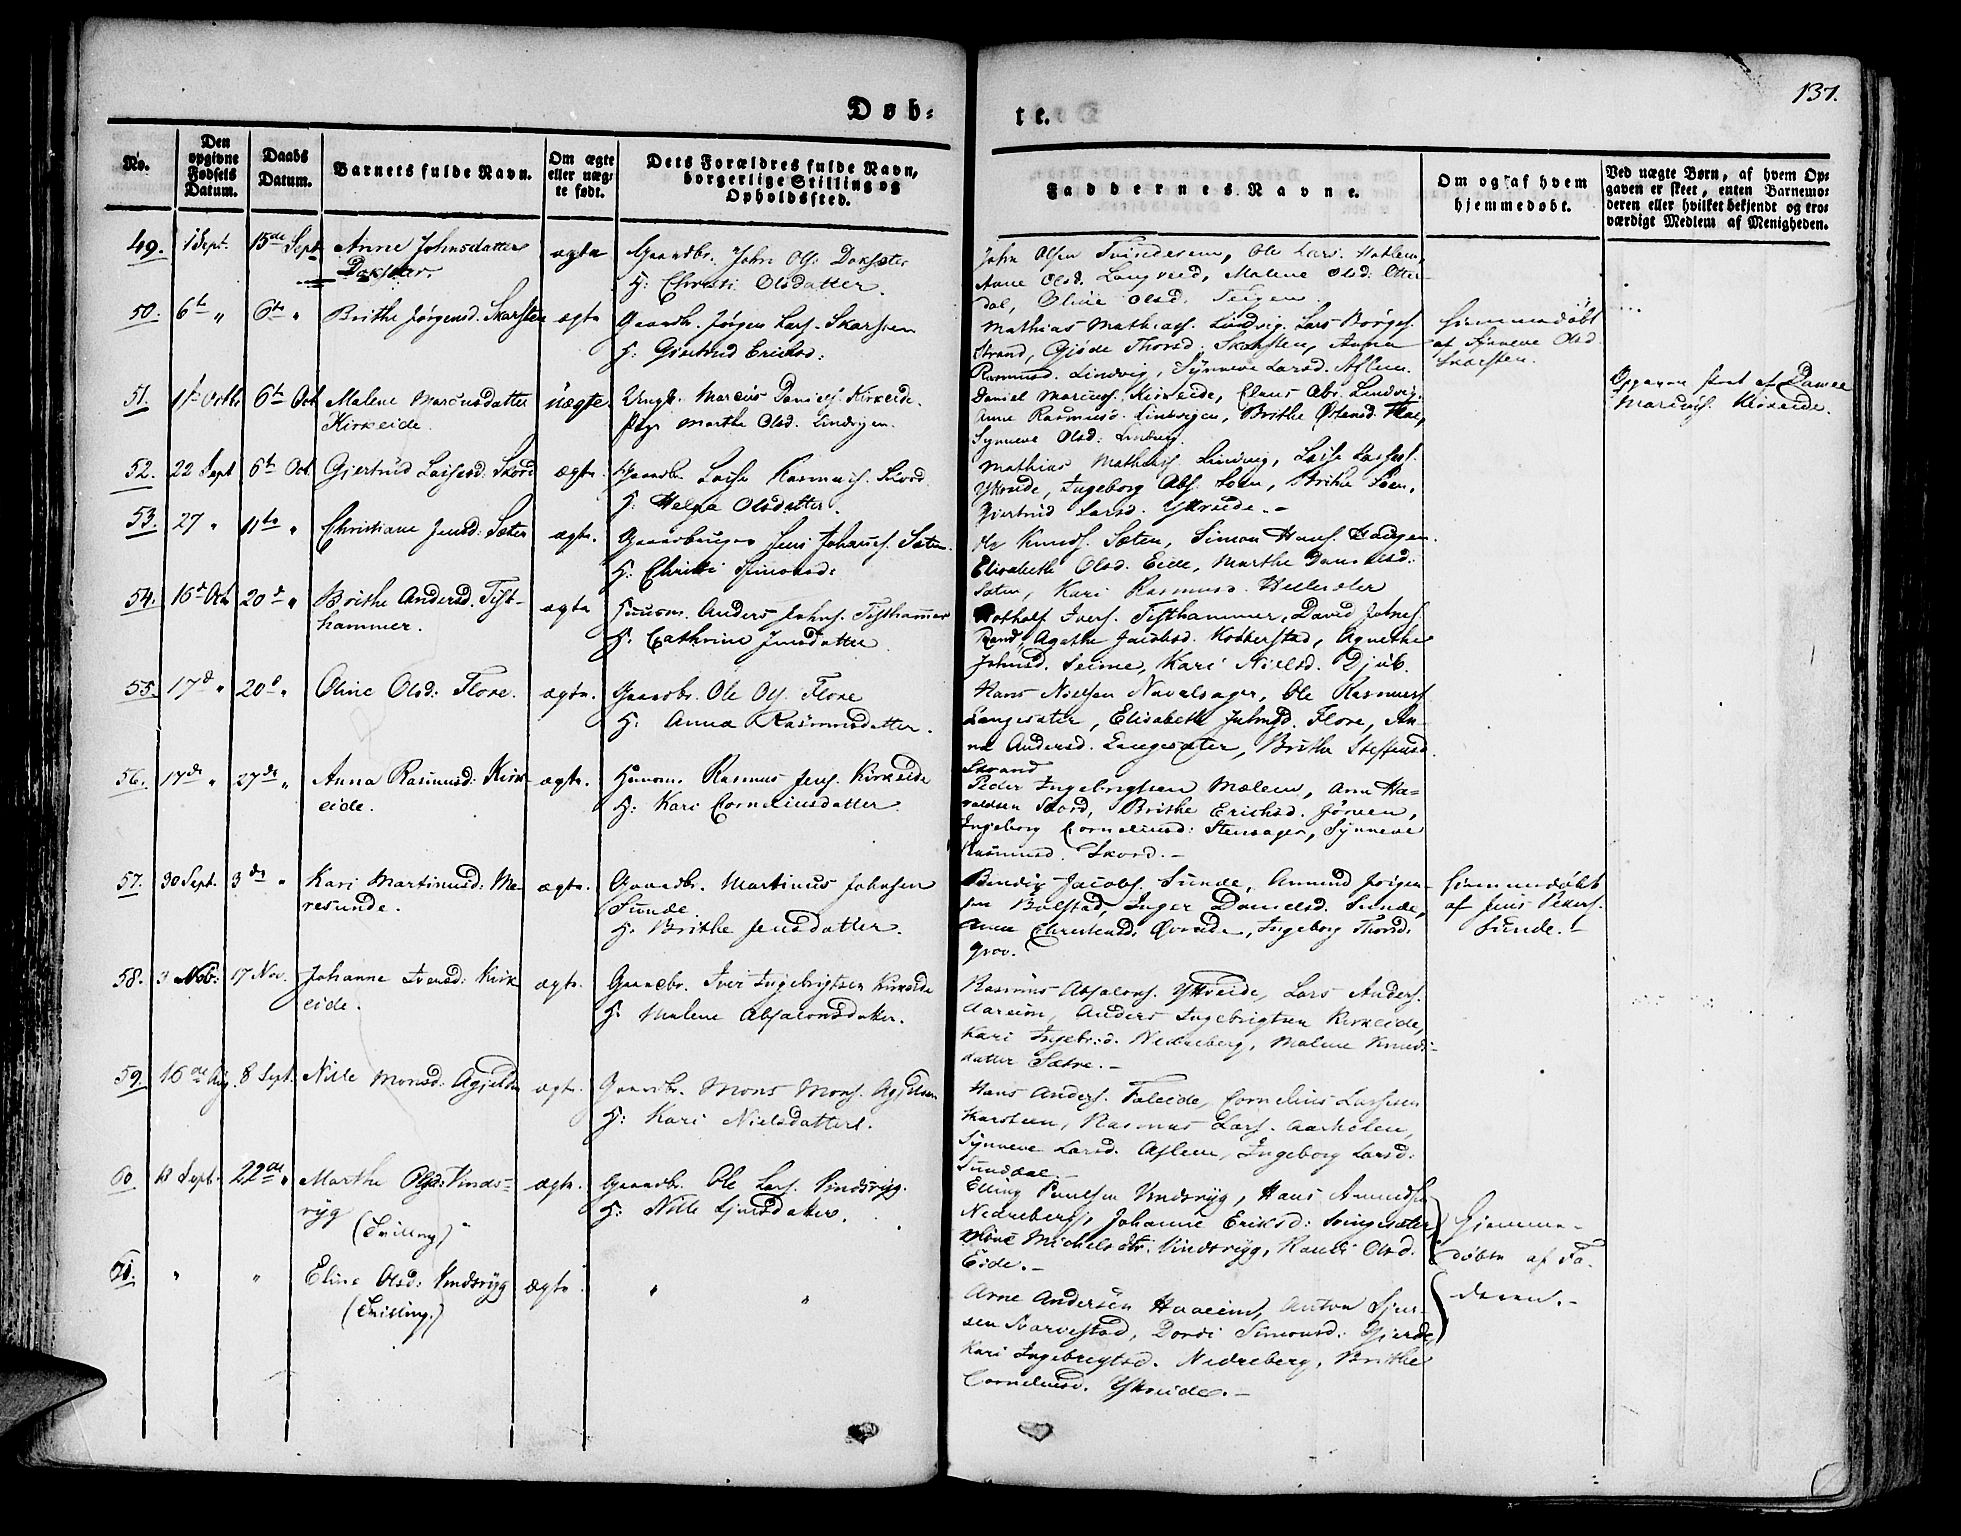 Døb-
te.
137.
No.
Den opgivne Fødsels Datum.
Daabs Datum.
Barnets fulde Navn.
Om ægte eller uæg-te født.
Dets Forældres fulde Navn, borgerlige Stilling og Opholdssted.
Faddernes Navne.
Om og af hvem hjemmedøbt.
Ved uægte Børn, af hvem Op-gaven er skeet, enten Barnemo-deren eller hvilket bekjendt og tro-værdigt Medlem af Menigheden.
49. 1 Sept. 15de Sept Anne Johnsdatter ægte Gaardbr. John Ols. Dokseter
Dokseter.
H: Christi Olsdatter.
John Olsen Tvinderem, Ole Lars.
Anne Olsd. Langveed, Malene Olsd. Otter-
dal, Oline Olsd. Teigen
50. 6te " 6te " Brithe Jørgensd. Skarsten ægte Gaardb. Jørgen Lars. Skarsten
H: Gjertrud Ericksd:
Mathias Mathias. Lindvig, Lars Børges.
Strand, Gjøde Thorsd. Skarsten, Anna
Rasmusd. Lindvig, Synneve Larsd. Aflem.
hjemmedøbt
af Synneve Olsd.
Skarsten.
51. 1ste Octb. 6te Oct Malene Marcusdatter uægte Ungk. Marcus Daniels. Kirkeide.
Kirkeide.
Pige Marthe Olsd. Lindvigen.
Daniel Marcuss. Kirkeide, Claus Abr. Lindvig,
Anne Rasmusd. Lindvigen, Brithe
Synneve Olsd: Lindvig.
Opgaven skeet af Daniel
Marcus. Kirkeide.
52. 22 Sept 6te Oct. Gjertrud Lassesd. Skord ægte Gaardbr. Lasse Rasmus. Skord.
H: Helga Olsdatter.
Mathias Mathias. Lindvig, Lasse Lasses.
Ytreide, Ingeborg Abs. Loen, Brithe Loen,
Gjertrud Larsd. Ytreide.-
53. 27 " 11te " Christiane Jensd: Sæten ægte. Gaardbruger Jens Johans. Sæten
H: Christi Simonsd:
Ole Knuds. Sæten, Simon Hans. Haugen.
Elisabeth Olsd. Eide, Marthe Danielsd:
Sæten, Kari Rasmusd. Hellesæter
54. 16de Oct 20de " Brithe Andersd. Tist- ægte Huusm. Anders Johns. Tisthammer
hammer.
H: Cathrine Jensdatter.
Ivers. Tisthammer, David Johnes.
Rand, Agathe Jacobsd. Kobberstad, Agnethe
Johnsd. Seime, Kari Nielsd. Djub.
55. 17de " 20de " Oline Olsd: Flore. ægte. Gaardbr. Ole Ols. Flore
H: Anna Rasmusdatter.
Hans Nielsen Navelsager, Ole Rasmuss.
Langesæter, Elisabeth Johnsd. Flore, An-
ne Andersd. Langesæter, Brithe Steffensd.
Strand
56. 17de " 27de " Anna Rasmusd: Kirk- ægte. Huusm. Rasmus Jens. Kirkeide
eide.
H: Kari Corneliusdatter
Peder Ingebrigtsen Mælem, Arne Ha-
raldsen Skord, Brithe Ericksd. Jørven,
Ingeborg Corneliusd: Stensager, Synneve
Rasmusd. Skord.-
57. 30 Sept. 3de " Kari Martinusd: Ma- ægte. Gaardbr. Martinus Johnsen
resunde.
Sunde
H: Brithe Jensdatter.
Bendix Jacobs. Sunde, Amund Jørgen-
sen Bolstad, Inger Danielsd. Sunde,
Anne Christensd: Qvrede, Ingeborg Thorsd.
Grov.
hjemmedøbt
af Jens Peders.
Sunde.-
58. 3 Nob: 17 Nov. Johanne Iversd: Kirk- ægte. Gaardbr. Iver Ingebrigtsen Kirkeide
eide.
H: Malene Absalonsdatter.
Rasmus Absalons. Ytreide, Lars Anders.
Aareim, Anders Ingebrigtsen Kirkeide,
Kari Ingebrd. Nedreberg, Malene Knuds-
datter Sætre.-
59. 16de Aug. 8 Sept. Nille Monsd: Agjelden ægte. Gaardbr. Mons Mons. Agjelden
H: Kari Nielsdatter.
Hans Anders. Faleide, Cornelius Larssen
Karsteen, Rasmus Lars. Aarholen,
Synneve Larsd. Aflem, Ingeborg Larsd:
Sunddal.-
60 18 Sept. 22de " Marthe Olsd: Vinds- ægte. Gaardbr. Ole Lars. Vindsryg.
ryg
(Tvilling)
H: Nille Sjursdatter.
Elling Paulsen Vindsryg, Hans Amundsen
Nedreberg, Johanne Eriksd: Svingesæter,
Oline Michelsdtr. Vindsryg, Randi Olsd.
Eide.-
Hjemme-
døbte af Fa-
deren.-
61. " " Eline Olsd: Vindsryg ægte " "
(Tvilling.)
Arne Andersen Haaeim, Anton Sjur-
sen Svarvestad, Dordi Simonsd: Gjerde,
Kari Ingebrigtsd. Nedreberg, Brithe
Corneliusd. Ytreide.-